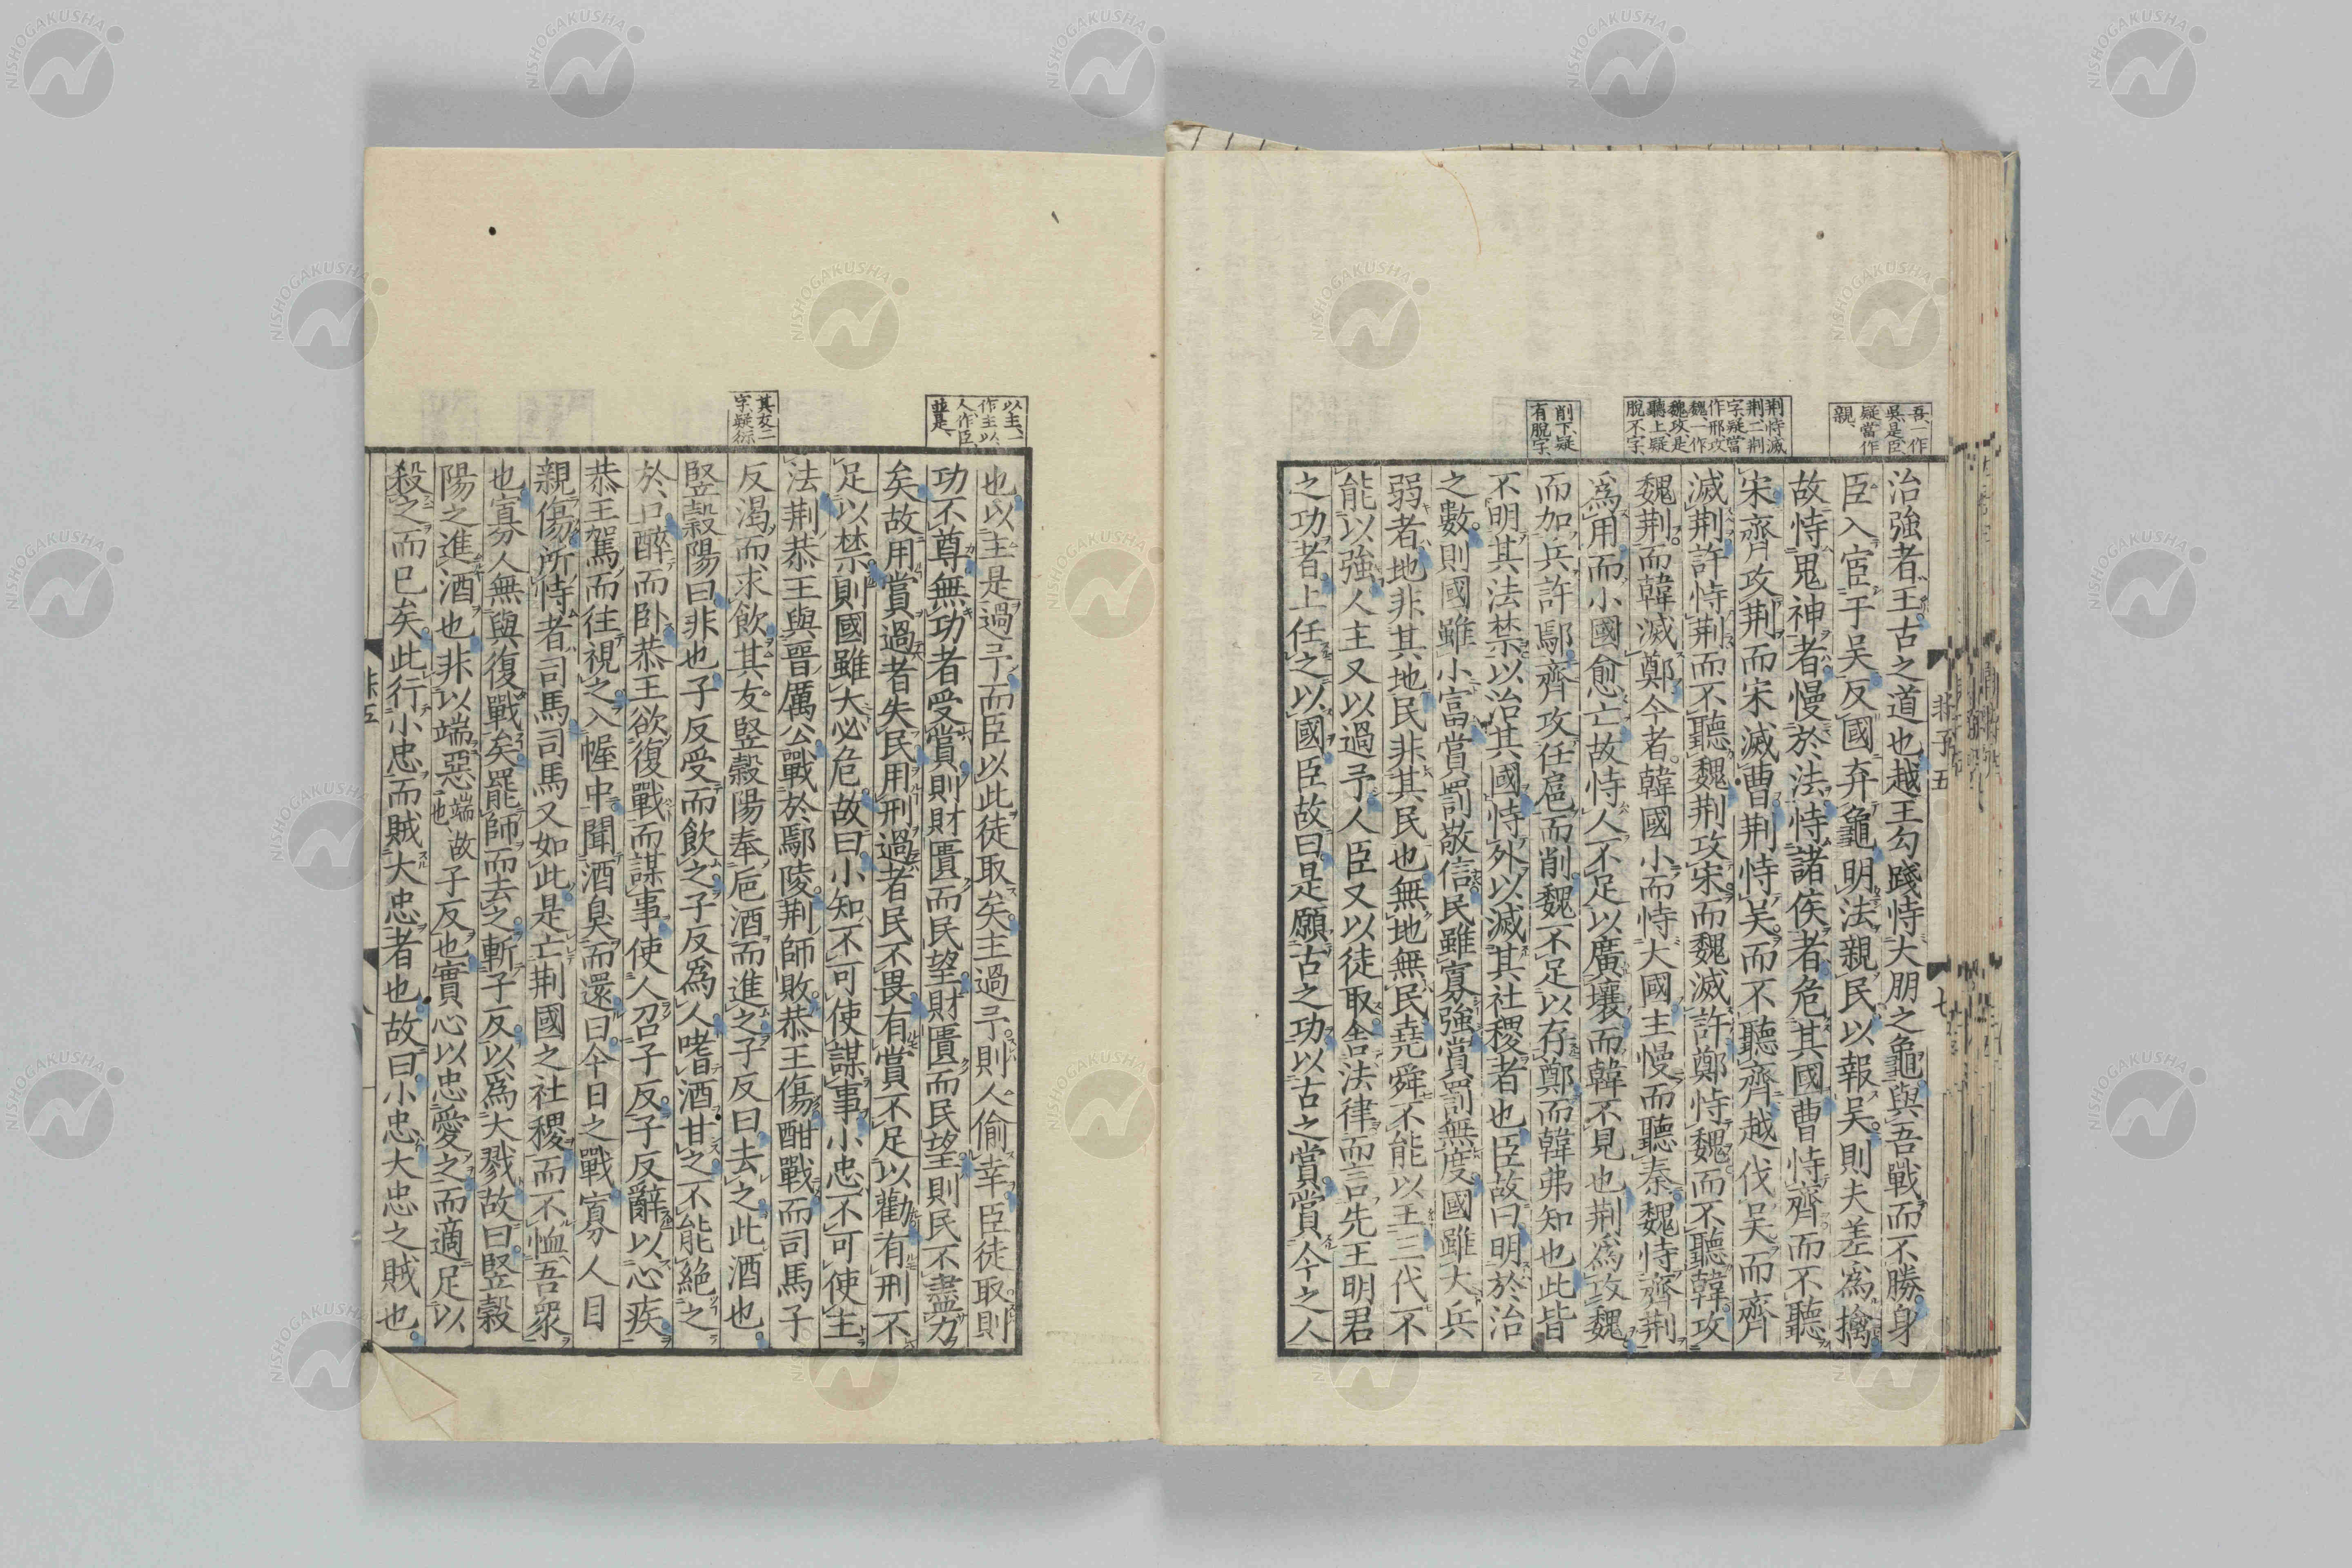 吾、一作
吳、是、臣、
疑當作
親、
荆恃滅
荆、二荆
字、疑當
作邢、攻
魏、一作
魏攻、是
聽上、疑
脫不字、
削下、疑
有脫字、
治強者王。古之道也。越王勾踐恃大朋之龜。與吾戰而不勝。身
臣入宦于吳。反國弃龜。明法親民以報吳。則夫差爲擒。
故恃鬼神者。慢於法。恃諸侯者。危其國。曹恃齊而不聽
宋。齊攻荆而宋滅曹。荆恃吳。而不聽齊。越伐吳而齊
滅荆。許恃荆而不聽魏。荆攻宋。而魏滅許。鄭恃魏而不聽韓。攻
魏荆。而韓滅鄭。今者。韓國小而恃大國。主慢而聽秦。魏恃齊荆
爲用。而小國愈亡。故恃人不足以廣壤。而韓不見也。荆爲攻魏。
而加兵許鄢。齊攻任扈而削。魏不足以存鄭。而韓弗知也。此皆
不明其法禁以治其國。恃外以滅其社稷者也。臣故曰。明於治
之數。則國雖小富。賞罰敬信。民雖寡強。賞罰無度。國雖大兵
弱者。地非其地。民非其民也。無地無民。堯舜不能以王。三代不
能以強。人主又以過予。人臣又以徒取。舍法律而言先王明君
之功者。上任之以國。臣故曰。是願古之功。以古之賞。賞今之人
非子五
七
以主、一
作主以、
人、作臣、
並是、
其友二
字、疑衍
也。以主是過予。而臣以此徒取矣。主過予。則人偷幸。臣徒取。則
功不尊。無功者受賞。則財匱而民望。財匱而民望。則民不盡力
矣。故用賞過者失民。用刑過者民不畏。有賞不足以勸。有刑不
足以禁。則國雖大必危。故曰。小知。不可使謀事。小忠。不可使主
法。荆恭王與晉厲公戰於鄢陵。荆師敗。恭王傷。酣戰。而司馬子
反渴而求飲。其友豎穀陽奉卮酒而進之。子反曰。去之。此酒也。
豎穀陽曰。非也。子反受而飲之。子反爲人嗜酒甘之。不能絕之
於口。醉而臥。恭王欲復戰而謀事。使人召子反。子反辭以心疾。
恭王駕而往視之。入幄中。聞酒臭而還曰。今日之戰。寡人目
親傷。所恃者司馬。司馬又如此。是亡荆國之社稷。而不恤吾衆
也。寡人無與復戰矣。罷師而去之。斬子反以爲大戮。故曰。豎穀
陽之進酒也。非以端惡端故也子反也。實心以忠愛之。而適足以
殺之而已矣。此行小忠。而賊大忠者也。故曰。小忠。大忠之賊也。